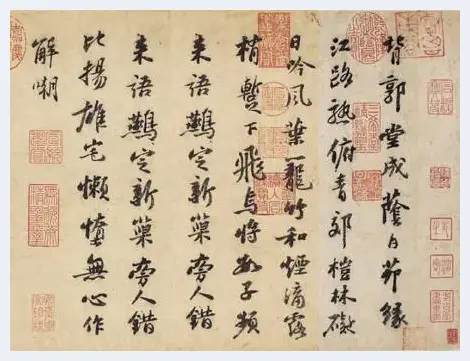 背郭堂成蔭白茅緣
江路熟俯青郊榿林礙
日吟風葉籠竹和煙滴露
梢暫下飛烏將數子頻
来語鷰定新巢旁人錯
来語鷰定新巢旁人錯
比揚雄宅懶惰無心作
解嘲